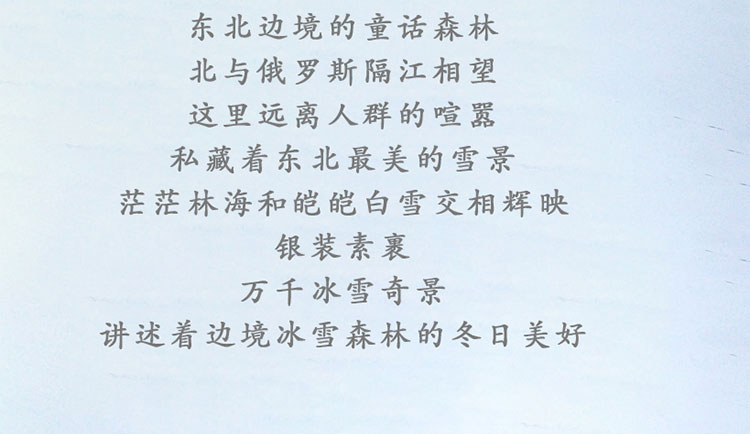 东北边境的童话森林
北与俄罗斯隔江相望
这里远离人群的喧嚣
私藏着东北最美的雪景
茫茫林海和皑皑白雪交相辉映
银装素裹
万千冰雪奇景
讲述着边境冰雪森林的冬日美好